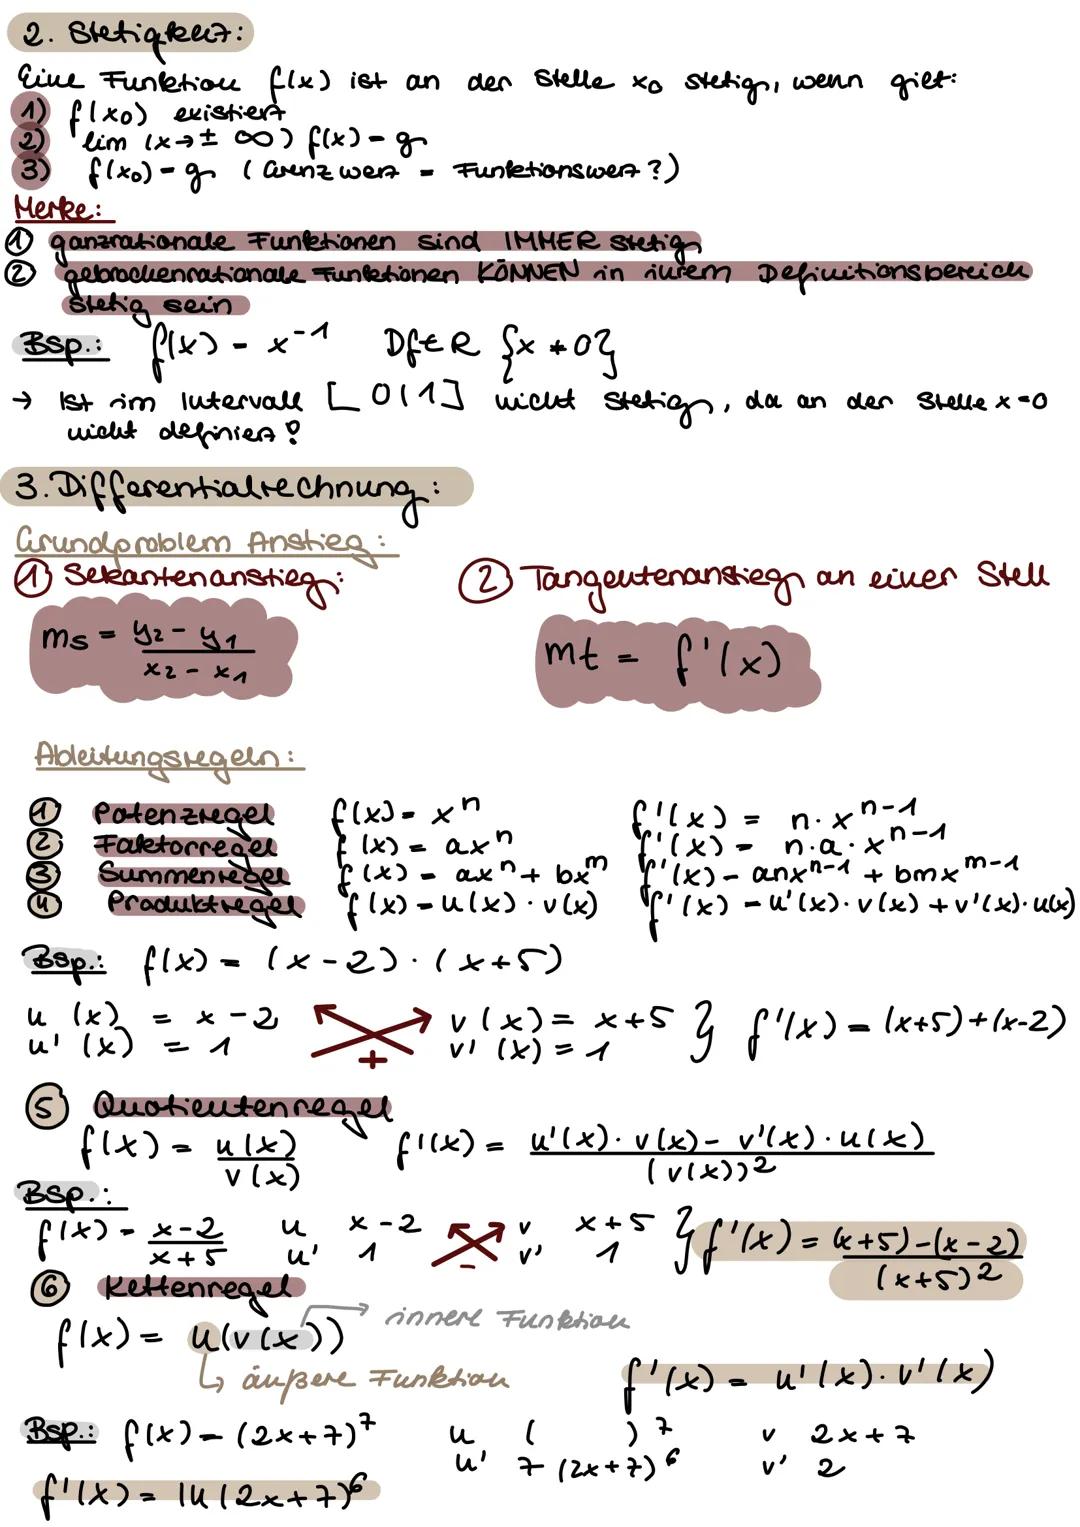 2. Stetigkeit:
Eine Funktion f(x) ist an der Stelle x₀ stetig, wenn gilt:
1) f(x₀) existiert
2) lim (x→± ∞) f(x) = g
3) f(x₀) = g (Grenzwert = Funktionswert?)
Merke:
① ganzrationale Funktionen sind IMMER stetig
② gebrochenrationale Funktionen KÖNNEN in ihrem Definitionsbereich
stetig sein
Bsp.: f(x) = x⁻¹ Df∈R {x ≠ 0}
→ Ist im Intervall [0|1] nicht stetig, da an der Stelle x=0
nicht definiert!
3. Differentialrechnung:
Grundproblem Anstieg:
① Sekantenanstieg: ② Tangentenanstieg an einer Stell
ms = (y₂ - y₁)/(x₂ - x₁) mt = f'(x)
Ableitungsregeln:
① Potenzregel f(x) = xⁿ f'(x) = n·xⁿ⁻¹
② Faktorregel f(x) = axⁿ f'(x) = n·a·xⁿ⁻¹
③ Summenregel f(x) = axⁿ + bxᵐ f'(x) = anxⁿ⁻¹ + bmxᵐ⁻¹
④ Produktregel f(x) = u(x)·v(x) f'(x) = u'(x)·v(x) + v'(x)·u(x)
Bsp.: f(x) = (x-2)·(x+5)
u (x) = x-2 v(x) = x+5 } f'(x) = (x+5)+(x-2)
u' (x) = 1 + v' (x) = 1
⑤ Quotientenregel
f(x) = u(x)/v(x) f'(x) = (u'(x)·v(x) - v'(x)·u(x))/(v(x))²
Bsp.:
f(x) = (x-2)/(x+5) u x-2 v x+5 } f'(x) = ((x+5)-(x-2))/(x+5)²
u' 1 - v' 1
⑥ Kettenregel
→ innere Funktion
f(x) = u(v(x))
↳ äußere Funktion f'(x) = u'(x)·v'(x)
Bsp.: f(x) = (2x+7)⁷ u ( )⁷ v 2x+7
u' 7 (2x+7)⁶ v' 2
f'(x) = 14(2x+7)⁶